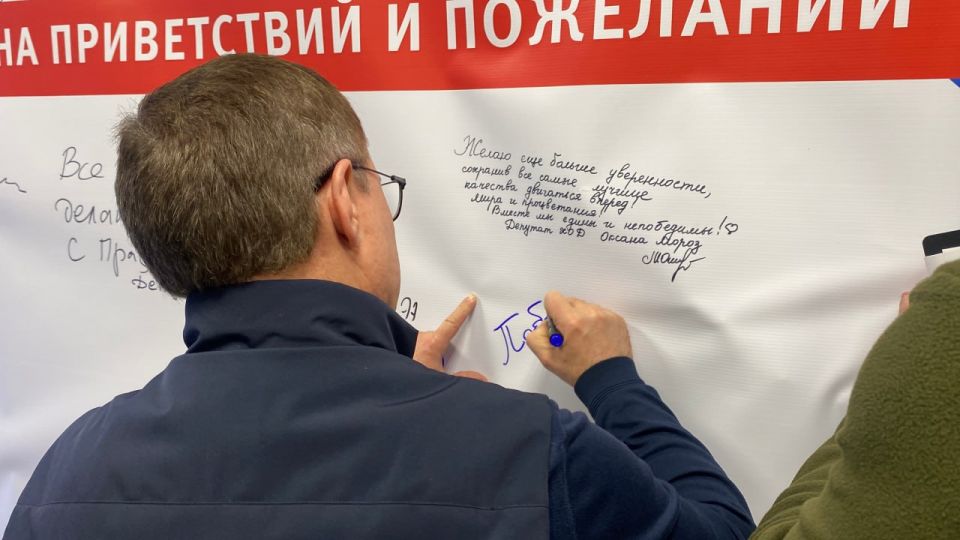 НА ПРИВЕТСТВИЙ И ПОЖЕЛАНИЙ
Все
делай
С Пра
Деп
Желаю еще больше уверенности,
сохранив все самые лучшие
качества двигаться вперед
Мира и процветания!
Вместе мы едины и непобедимы!♡
Депутат ХОД Оксана Мороз
Поб